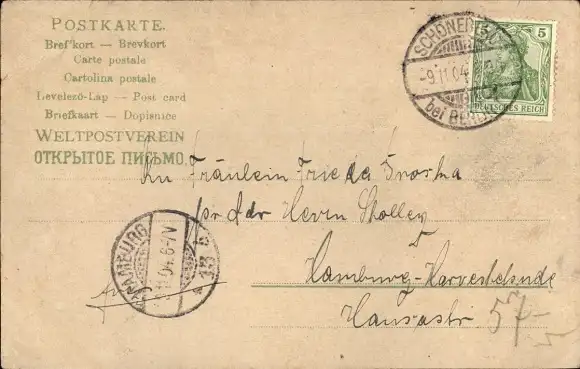 POSTKARTE.
Brefkort — Brevkort
Carte postale
Cartolina postale
Levelező-Lap — Post card
Briefkaart — Dopisnice
WELTPOSTVEREIN
ОТКРЫТОЕ ПИСЬМО.
5
DEUTSCHES REICH
SCHÖNEBERG
-9.11.04
bei BERLIN
An Fräulein Frieda
pr Adr Herrn Stolley
Hamburg-Harvestehude
Hansastr 57
HAMBURG
11.04.6-7V
* 13 *